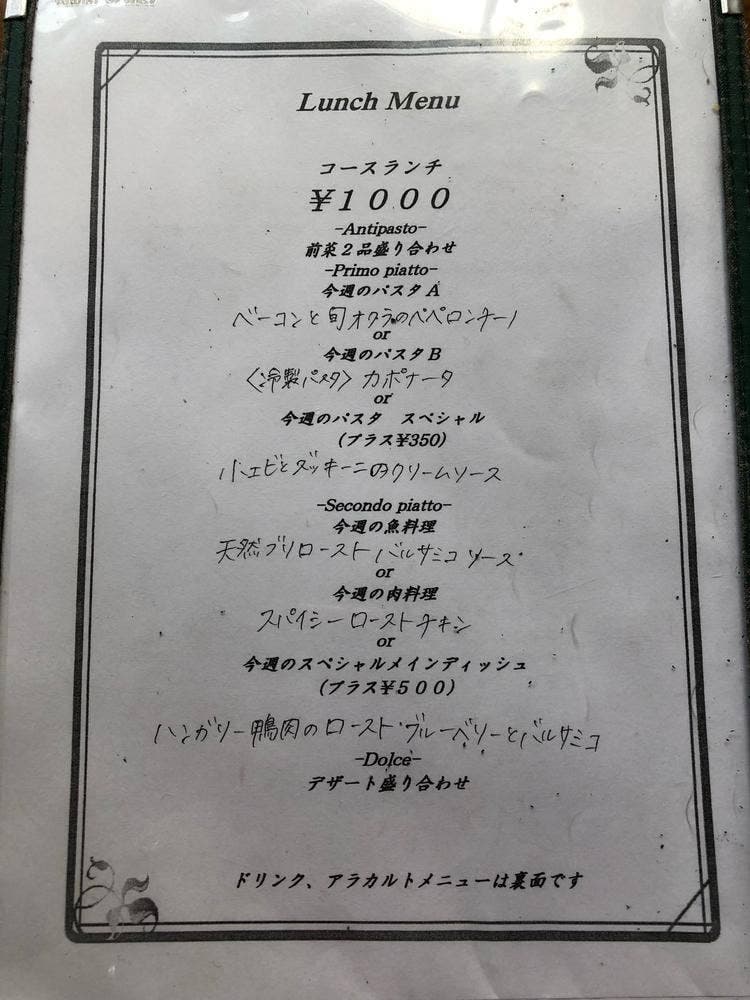 Lunch Menu
コースランチ
¥1000
-Antipasto-
前菜2品盛り合わせ
-Primo piatto-
今週のパスタA
ベーコンと旬オクラのペペロンチーノ
or
今週のパスタB
〈冷製パスタ〉カポナータ
or
今週のパスタ スペシャル
(プラス¥350)
小エビとズッキーニのクリームソース
-Secondo piatto-
今週の魚料理
天然ブリロースト バルサミコソース
or
今週の肉料理
スパイシーローストチキン
or
今週のスペシャルメインディッシュ
(プラス¥500)
ハンガリー鴨肉のロースト・ブルーベリーとバルサミコ
-Dolce-
デザート盛り合わせ
ドリンク、アラカルトメニューは裏面です